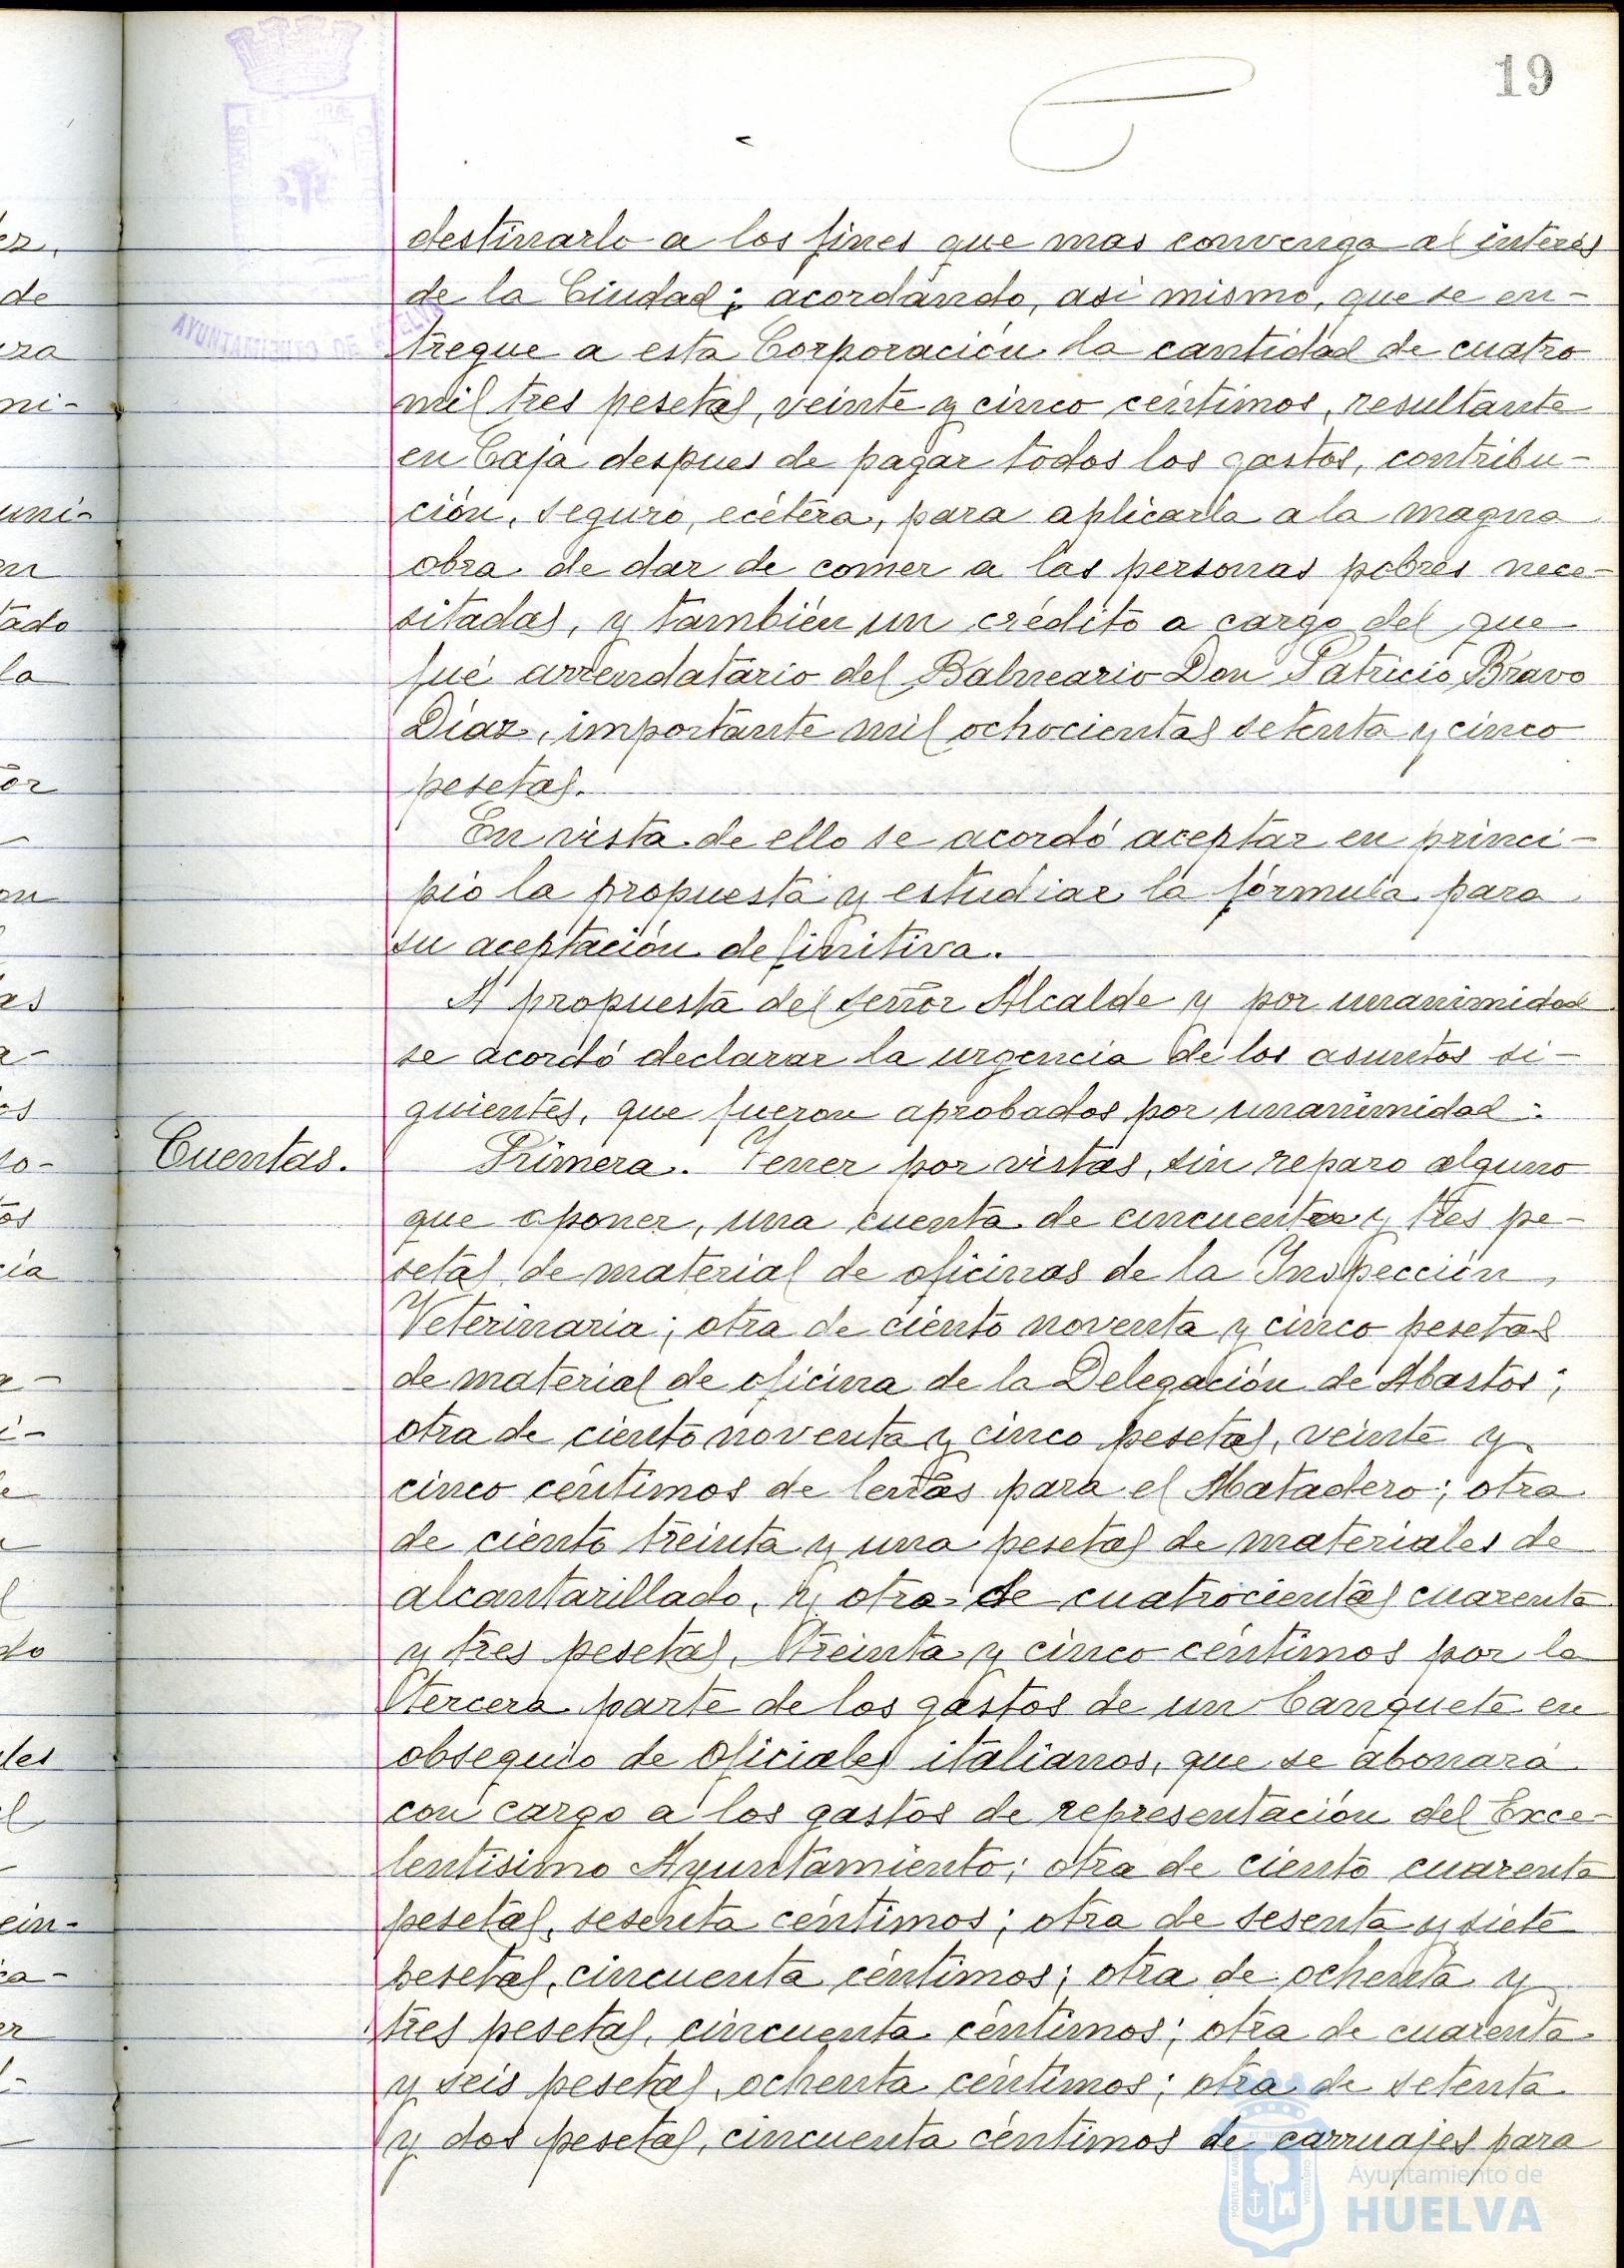 19
AYUNTAMIENTO DE HUELVA
destinarlo a los fines que mas convenga al interés
de la Ciudad; acordándo, asi mismo, que se en-
tregue a esta Corporación la cantidad de cuatro
mil tres pesetas, veinte y cinco céntimos, resultante
en Caja despues de pagar todos los gastos, contribu-
ción, seguro, ecétera, para aplicarla a la magna
obra de dar de comer a las personas pobres nece-
sitadas, y también un crédito a cargo del que
fué arrendatario del Balneario Don Patricio Bravo
Diaz, importante mil ochocientas setenta y cinco
pesetas.
En vista de ello se acordó aceptar en princi-
pio la propuesta y estudiar la fórmula para
su aceptación definitiva.
A propuesta del señor Alcalde y por unanimidad
se acordó declarar la urgencia de los asuntos si-
guientes, que fueron aprobados por unanimidad:
Cuentas.
Primera. Tener por vistas, sin reparo alguno
que oponer, una cuenta de cincuenta y tres pe-
setas de material de oficinas de la Inspección
Veterinaria; otra de ciento noventa y cinco pesetas
de material de oficina de la Delegación de Abastos;
otra de ciento noventa y cinco pesetas, veinte y
cinco céntimos de leñas para el Matadero; otra
de ciento treinta y una pesetas de materiales de
alcantarillado, y otra de cuatrocientas cuarenta
y tres pesetas, treinta y cinco céntimos por la
tercera parte de los gastos de un banquete en
obsequio de oficiales italianos, que se abonará
con cargo a los gastos de representación del Exce-
lentisimo Ayuntamiento; otra de ciento cuarenta
pesetas, sesenta céntimos; otra de sesenta y siete
pesetas, cincuenta céntimos; otra de ochenta y
tres pesetas, cincuenta céntimos; otra de cuarenta
y seis pesetas, ochenta céntimos; otra de setenta
y dos pesetas, cincuenta céntimos de carruajes para
Ayuntamiento de
HUELVA